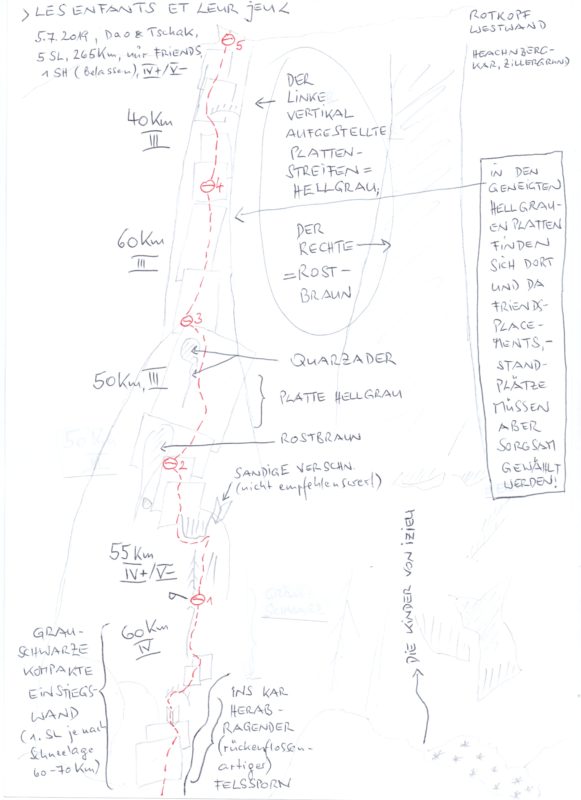 > LES ENFANTS ET LEUR JEU <
5.7.2019, Dao & Tschak,
5 SL, 265Km, nur FRIENDS,
1 SH (Belassen), IV+/V-
ROTKOPF
WESTWAND
HEACHNZBERG-
KAR, ZILLERGRUND
5
40Km
III
DER
LINKE
VERTIKAL
AUFGESTELLTE
PLATTEN-
STREIFEN =
HELLGRAU;
4
60Km
III
DER
RECHTE
= ROST-
BRAUN
IN DEN
GENEIGTEN
HELLGRAU-
EN PLATTEN
FINDEN
SICH DORT
UND DA
FRIENDS-
PLACE-
MENTS,-
STAND-
PLÄTZE
MÜSSEN
ABER
SORGSAM
GEWÄHLT
WERDEN!
3
QUARZADER
50Km, III
PLATTE HELLGRAU
ROSTBRAUN
2
SANDIGE VERSCHN.
(nicht empfehlenswert)
55Km
IV+/V-
1
60Km
IV
GRAU-
SCHWARZE
KOMPAKTE
EINSTIEGS-
WAND
(1. SL je nach
Schneelage
60-70Km)
INS KAR
HERAB-
RAGENDER
(rückenflossen-
artiger)
FELSSPORN
DIE KINDER VON IZIEU